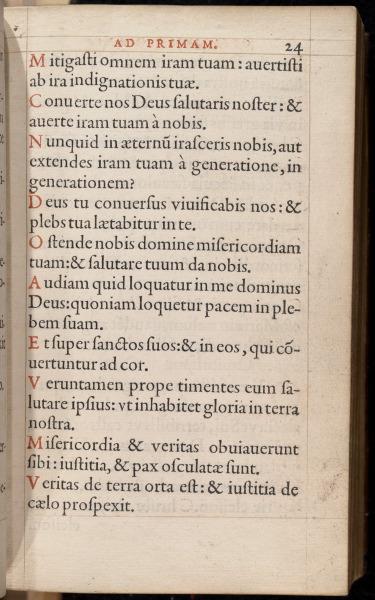 AD PRIMAM. 24
Mitigasti omnem iram tuam : auertisti
ab ira indignationis tuæ.
Conuerte nos Deus salutaris noster : &
auerte iram tuam à nobis.
Nunquid in æternũ irasceris nobis, aut
extendes iram tuam à generatione, in
generationem?
Deus tu conuersus viuificabis nos : &
plebs tua lætabitur in te.
Ostende nobis domine misericordiam
tuam:& salutare tuum da nobis.
Audiam quid loquatur in me dominus
Deus:quoniam loquetur pacem in ple-
bem suam.
Et super sanctos suos:& in eos, qui cõ-
uertuntur ad cor.
Veruntamen prope timentes eum sa-
lutare ipsius: vt inhabitet gloria in terra
nostra.
Misericordia & veritas obuiauerunt
sibi : iustitia, & pax osculatæ sunt.
Veritas de terra orta est: & iustitia de
cælo prospexit.